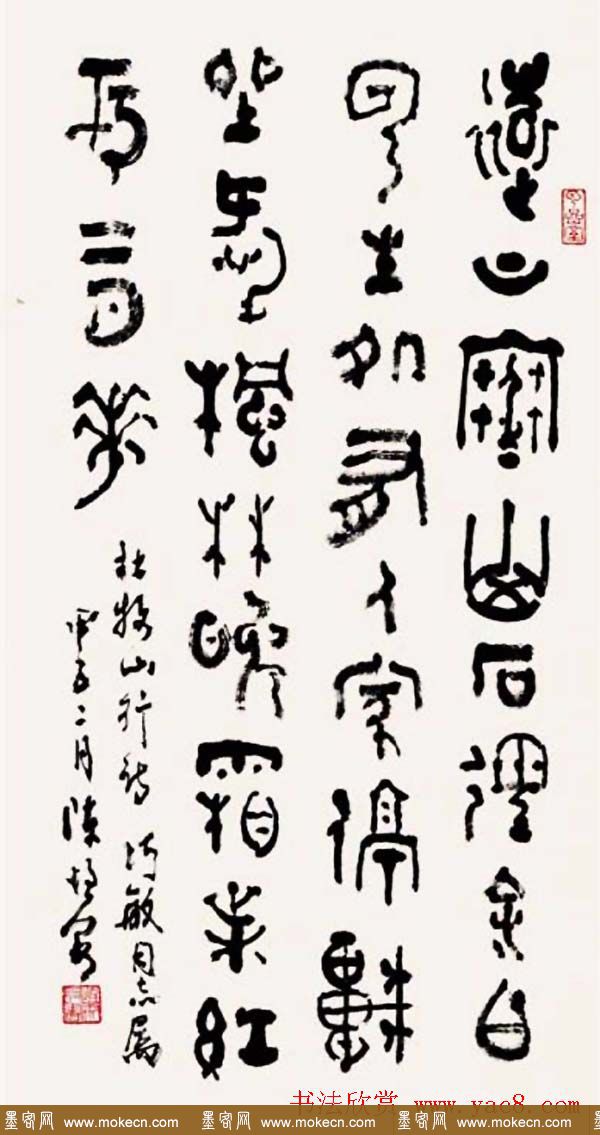 遠上寒山石徑斜白
雲生處有人家停車
坐愛楓林晚霜葉紅
于二月花
杜牧山行詩 敏同志屬
甲子二月 陳
书法欣赏 www.yac8.com
墨客网 www.mokecn.com 墨客网 www.mokecn.com 墨客网 www.mokecn.com